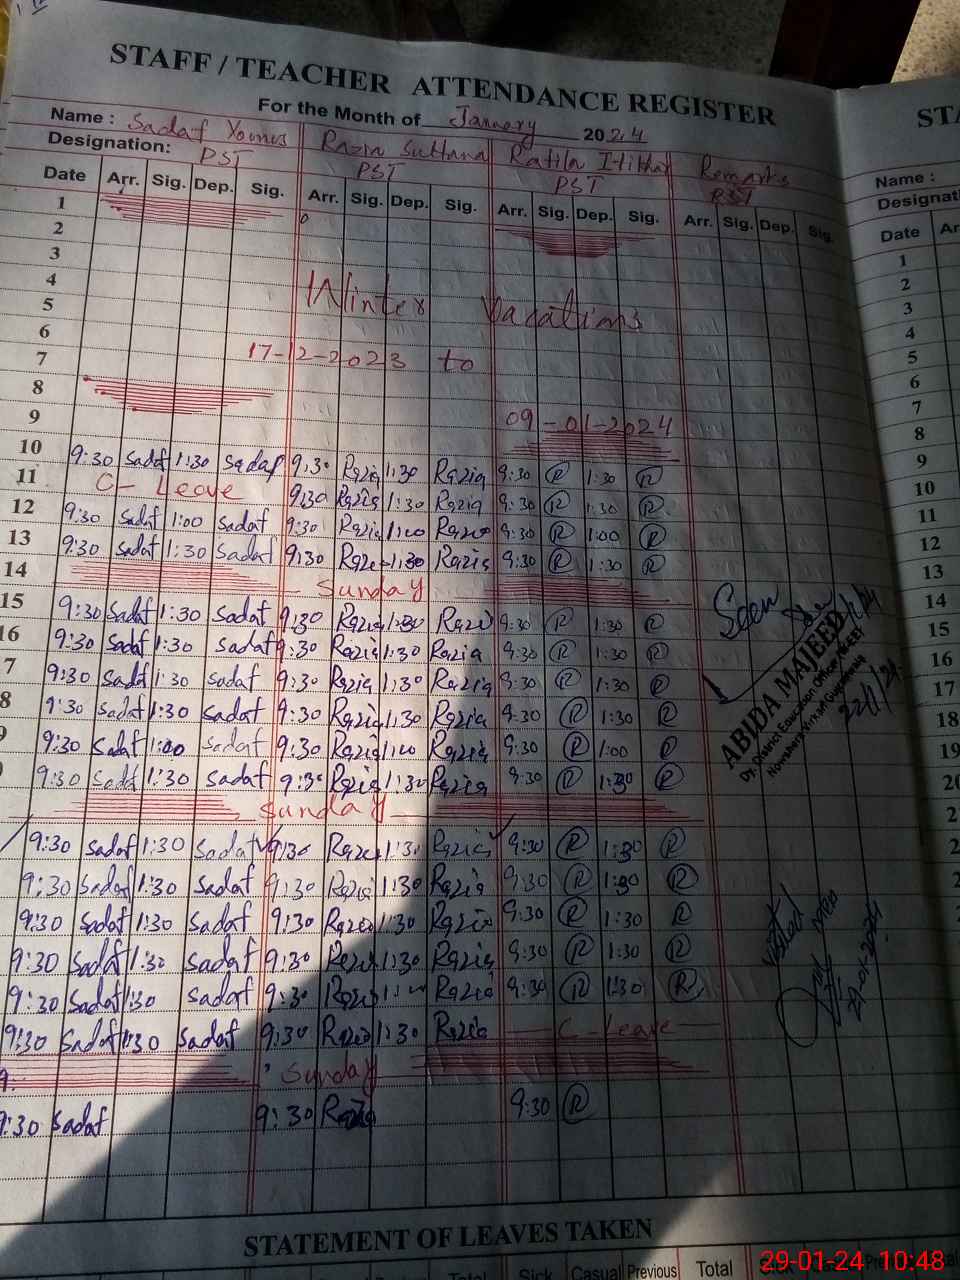 STAFF / TEACHER ATTENDANCE REGISTER
For the Month of January 2024
Name : Sadaf Younus Razia Sultana Rafila Iftikhar Remarks
Designation: PST PST PST PST
Date Arr. Sig. Dep. Sig. Arr. Sig. Dep. Sig. Arr. Sig. Dep. Sig. Arr. Sig. Dep. Sig.
1
2
3
4 Winter Vacations
5
6
7 17-12-2023 to
8
9 09-01-2024
10 9:30 Sadaf 1:30 Sadaf 9:30 Razia 1:30 Razia 9:30 R 1:30 R
11 C- Leave 9:30 Razia 1:30 Razia 9:30 R 1:30 R
12 9:30 Sadaf 1:00 Sadaf 9:30 Razia 1:00 Razia 9:30 R 1:00 R
13 9:30 Sadaf 1:30 Sadaf 9:30 Razia 1:30 Razia 9:30 R 1:30 R
14 Sunday
15 9:30 Sadaf 1:30 Sadaf 9:30 Razia 1:30 Razia 9:30 R 1:30 R
16 9:30 Sadaf 1:30 Sadaf 9:30 Razia 1:30 Razia 9:30 R 1:30 R
7 9:30 Sadaf 1:30 Sadaf 9:30 Razia 1:30 Razia 9:30 R 1:30 R
8 9:30 Sadaf 1:30 Sadaf 9:30 Razia 1:30 Razia 9:30 R 1:30 R
9:30 Sadaf 1:00 Sadaf 9:30 Razia 1:00 Razia 9:30 R 1:00 R
9:30 Sadaf 1:30 Sadaf 9:30 Razia 1:30 Razia 9:30 R 1:30 R
Sunday
9:30 Sadaf 1:30 Sadaf 9:30 Razia 1:30 Razia 9:30 R 1:30 R
9:30 Sadaf 1:30 Sadaf 9:30 Razia 1:30 Razia 9:30 R 1:30 R
9:30 Sadaf 1:30 Sadaf 9:30 Razia 1:30 Razia 9:30 R 1:30 R
9:30 Sadaf 1:30 Sadaf 9:30 Razia 1:30 Razia 9:30 R 1:30 R
9:30 Sadaf 1:30 Sadaf 9:30 Razia Razia 9:30 R 1:30 R
9:30 Sadaf 1:30 Sadaf 9:30 Razia 1:30 Razia C-Leave
Sunday
9:30 Sadaf 9:30 Razia 9:30 R
Seen
ABIDA MAJEED
Dy. District Education Officer
Nowshera Virkan Gujranwala
22/1/24
Visited
noted
29-01-2024
STATEMENT OF LEAVES TAKEN
Total Sick Casual Previous Total
STA
Name :
Designati
Date Ar
1
2
3
4
5
6
7
8
9
10
11
12
13
14
15
16
17
18
19
20
29-01-24 10:48